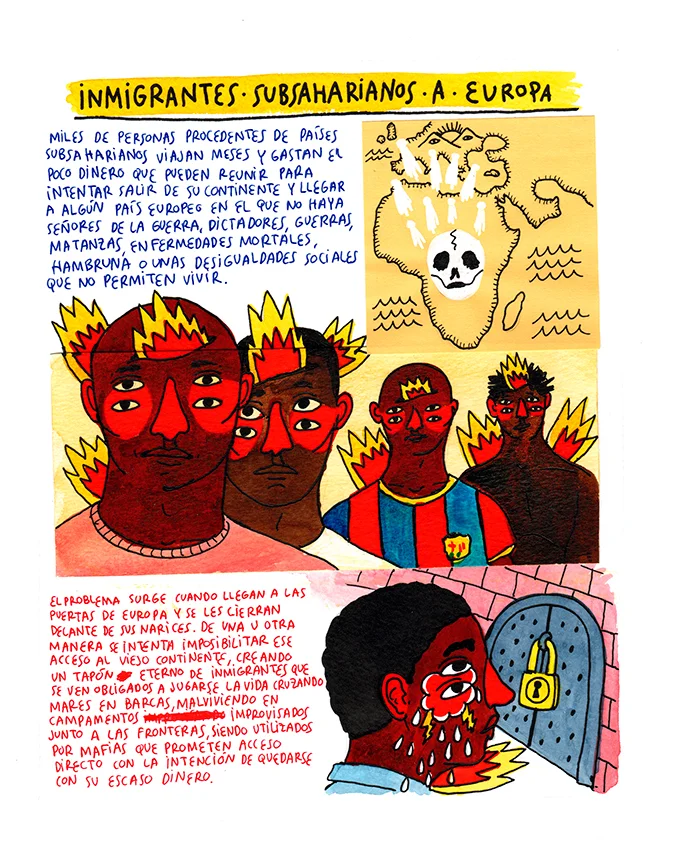 INMIGRANTES · SUBSAHARIANOS · A · EUROPA
MILES DE PERSONAS PROCEDENTES DE PAÍSES
SUBSAHARIANOS VIAJAN MESES Y GASTAN EL
POCO DINERO QUE PUEDEN REUNIR PARA
INTENTAR SALIR DE SU CONTINENTE Y LLEGAR
A ALGÚN PAÍS EUROPEO EN EL QUE NO HAYA
SEÑORES DE LA GUERRA, DICTADORES, GUERRAS,
MATANZAS, ENFERMEDADES MORTALES,
HAMBRUNA O UNAS DESIGUALDADES SOCIALES
QUE NO PERMITEN VIVIR.
EL PROBLEMA SURGE CUANDO LLEGAN A LAS
PUERTAS DE EUROPA Y SE LES CIERRAN
DELANTE DE SUS NARICES. DE UNA U OTRA
MANERA SE INTENTA IMPOSIBILITAR ESE
ACCESO AL VIEJO CONTINENTE, CREANDO
UN TAPÓN ETERNO DE INMIGRANTES QUE
SE VEN OBLIGADOS A JUGARSE LA VIDA CRUZANDO
MARES EN BARCAS, MALVIVIENDO EN
CAMPAMENTOS IMPROVISADOS
JUNTO A LAS FRONTERAS, SIENDO UTILIZADOS
POR MAFIAS QUE PROMETEN ACCESO
DIRECTO CON LA INTENCIÓN DE QUEDARSE
CON SU ESCASO DINERO.